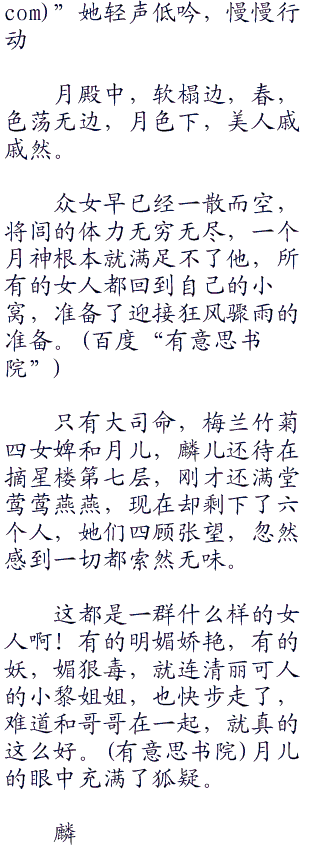 com)”她轻声低吟，慢慢行
动
月殿中，软榻边，春，
色荡无边，月色下，美人戚
戚然。
众女早已经一散而空，
将闾的体力无穷无尽，一个
月神根本就满足不了他，所
有的女人都回到自己的小
窝，准备了迎接狂风骤雨的
准备。(百度“有意思书
院”)
只有大司命，梅兰竹菊
四女婢和月儿，麟儿还待在
摘星楼第七层，刚才还满堂
莺莺燕燕，现在却剩下了六
个人，她们四顾张望，忽然
感到一切都索然无味。
这都是一群什么样的女
人啊！有的明媚娇艳，有的
妖，媚狠毒，就连清丽可人
的小黎姐姐，也快步走了，
难道和哥哥在一起，就真的
这么好。(有意思书院)月儿
的眼中充满了狐疑。
麟